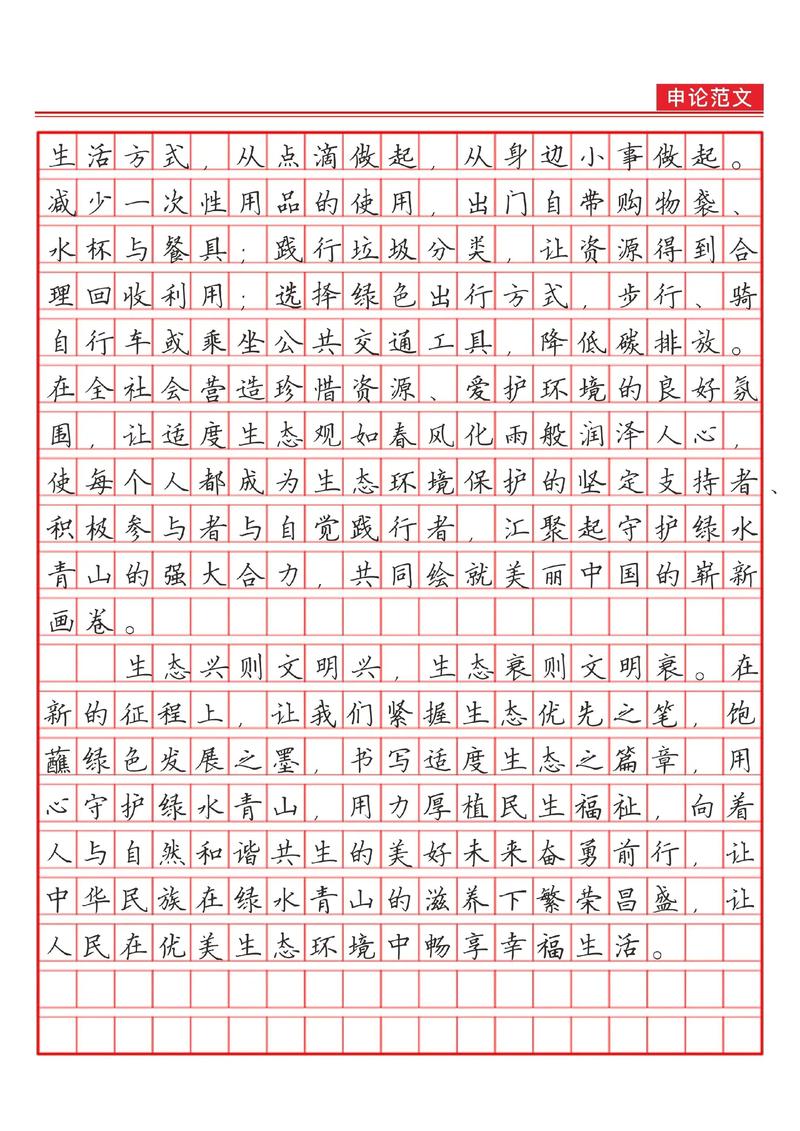 申论范文
生活方式，从点滴做起，从身边小事做起。
减少一次性用品的使用，出门自带购物袋、
水杯与餐具；践行垃圾分类，让资源得到合
理回收利用；选择绿色出行方式，步行、骑
自行车或乘坐公共交通工具，降低碳排放。
在全社会营造珍惜资源、爱护环境的良好氛
围，让适度生态观如春风化雨般润泽人心，
使每个人都成为生态环境保护的坚定支持者、
积极参与者与自觉践行者，汇聚起守护绿水
青山的强大合力，共同绘就美丽中国的崭新
画卷。
生态兴则文明兴，生态衰则文明衰。在
新的征程上，让我们紧握生态优先之笔，饱
蘸绿色发展之墨，书写适度生态之篇章，用
心守护绿水青山，用力厚植民生福祉，向着
人与自然和谐共生的美好未来奋勇前行，让
中华民族在绿水青山的滋养下繁荣昌盛，让
人民在优美生态环境中畅享幸福生活。